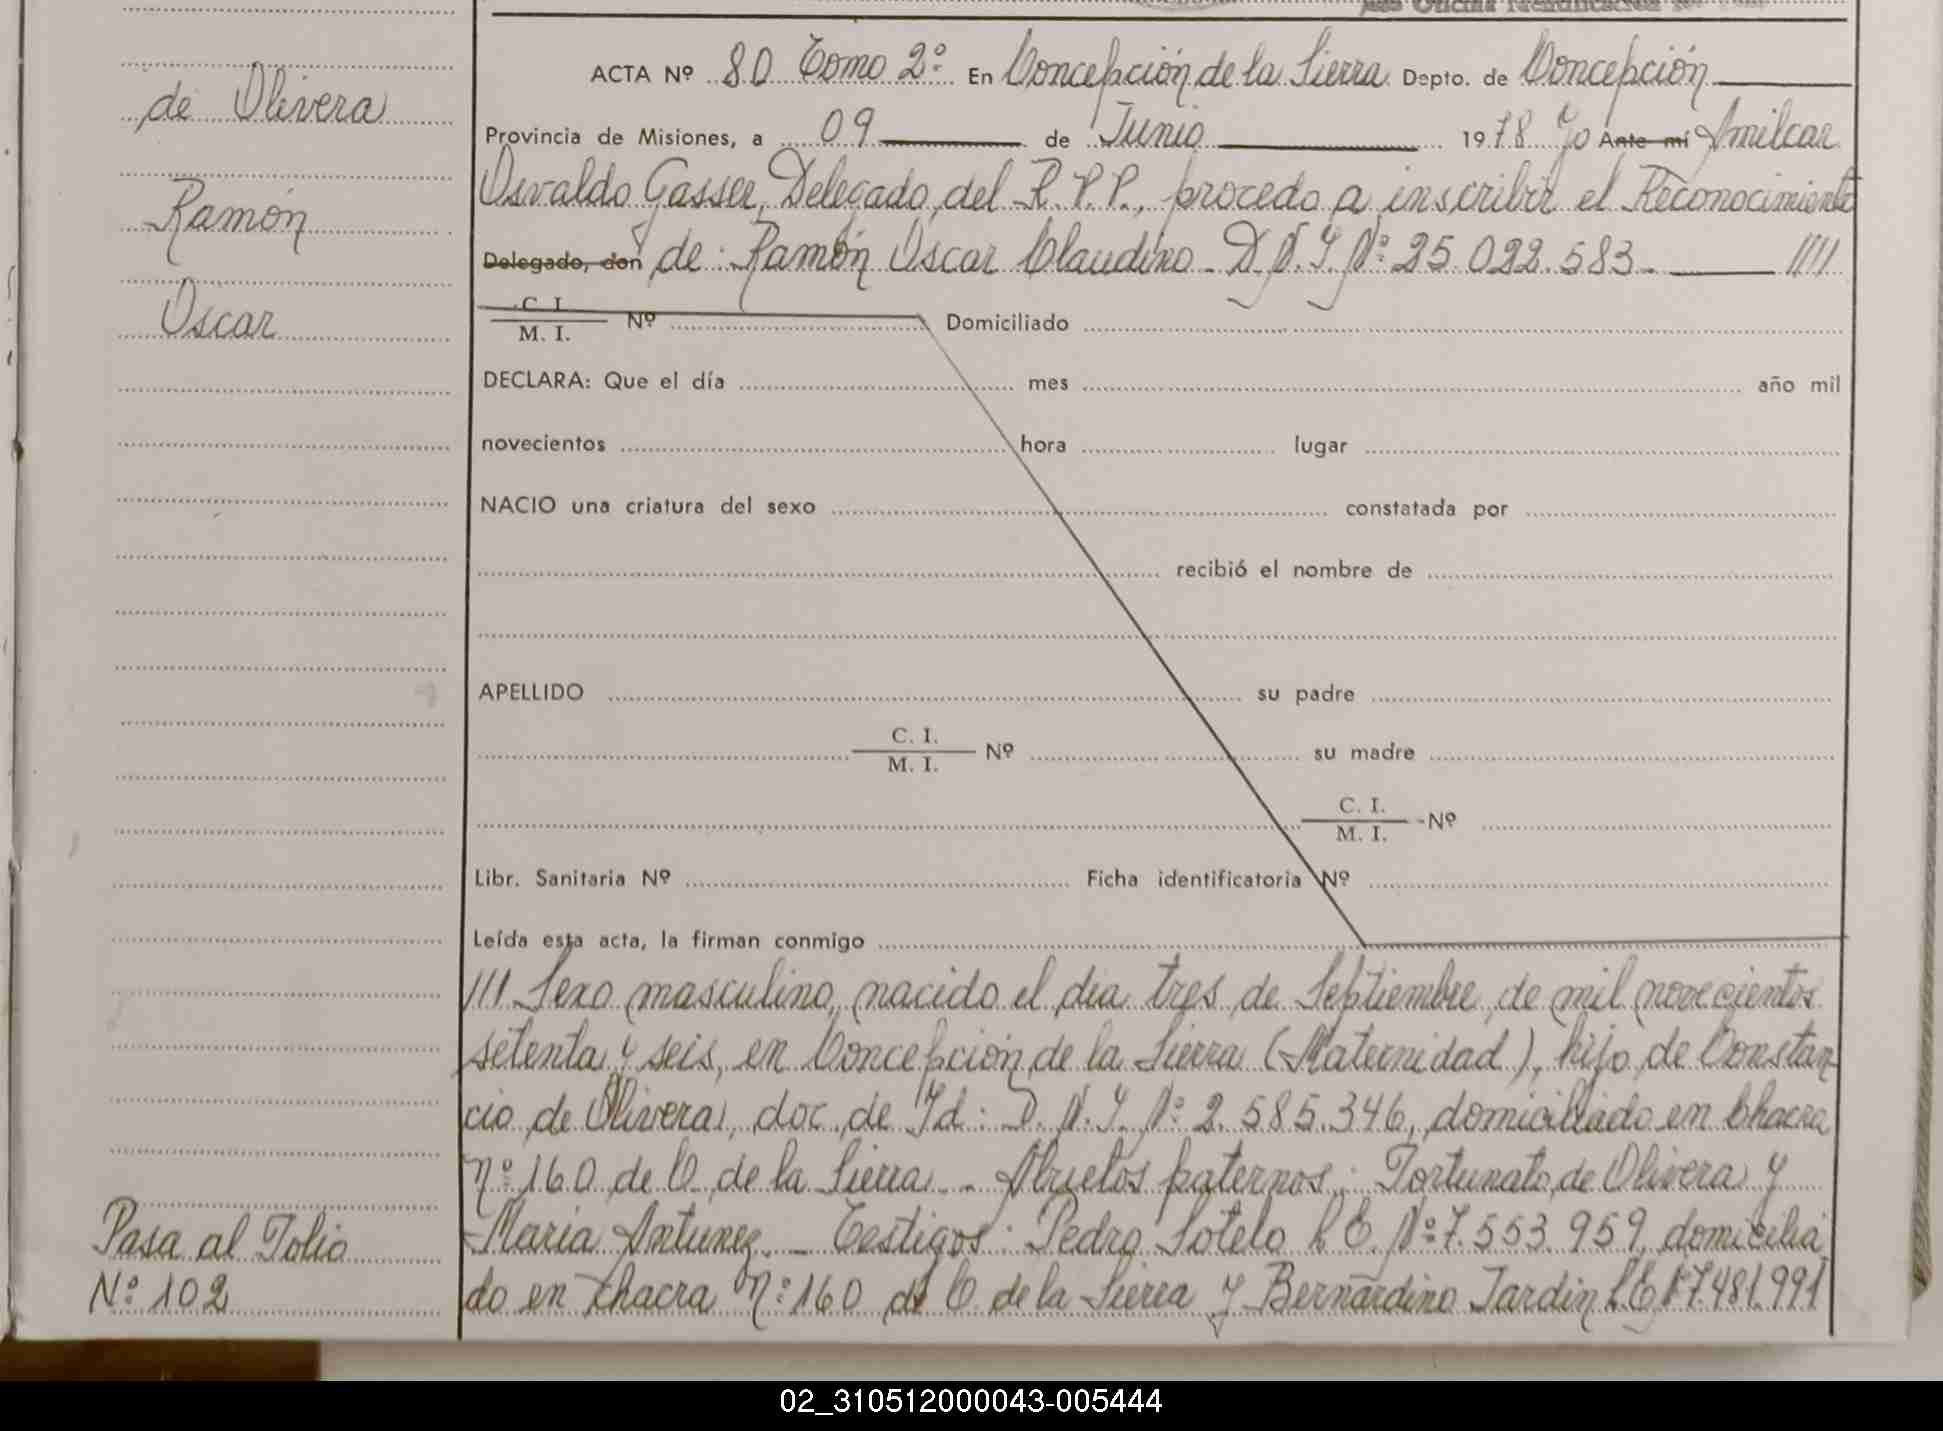 de Olivera
Ramón
Oscar
Pasa al Folio
Nº 102
ACTA Nº 80 Tomo 2º En Concepción de la Sierra Depto. de Concepción
Provincia de Misiones, a 09 de Junio 1978 Yo Ante mí Amilcar
Osvaldo Gasser, Delegado del R.P.P., procedo a inscribir el Reconocimiento
Delegado, don de: Ramón Oscar Claudino - D.N.I Nº 25.022.583 - ////
C. I.
M. I. Nº Domiciliado
DECLARA: Que el día mes año mil
novecientos hora lugar
NACIO una criatura del sexo constatada por
recibió el nombre de
APELLIDO su padre
C. I.
M. I. Nº su madre
C. I.
M. I. -Nº
Libr. Sanitaria Nº Ficha identificatoria Nº
Leída esta acta, la firman conmigo
//// Sexo masculino, nacido el día tres de Septiembre de mil novecientos
setenta y seis, en Concepción de la Sierra (Maternidad), hijo de Constan
cio de Olivera, doc. de Id: D.N.I. Nº 2.585.346, domiciliado en Chacra
Nº 160 de C. de la Sierra - Abuelos paternos: Fortunato de Olivera y
María Antunez. - Testigos: Pedro Sotelo L.E. Nº 7.553.959, domicilia
do en Chacra Nº 160 de C. de la Sierra y Bernardino Jardin L.E. Nº 7.481.991
02_310512000043-005444